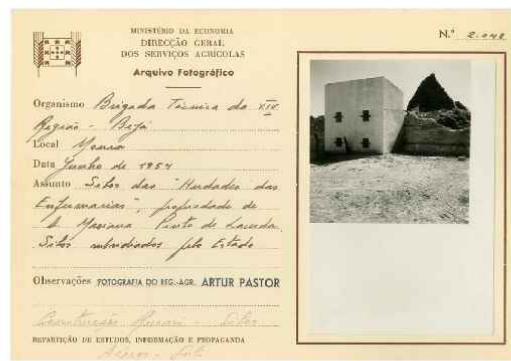 MINISTÉRIO DA ECONOMIA
DIRECÇÃO GERAL
DOS SERVIÇOS AGRÍCOLAS
Arquivo Fotográfico
N.º 2.042
Organismo Brigada Técnica da XIV
Região - Beja
Local Moura
Data Junho de 1954
Assunto Silos das "Herdades das
Enfermarias", propriedade de
D. Mariana Pinto de Lacerda.
Silos subsidiados pelo Estado
Observações FOTOGRAFIA DO REG.-AGR. ARTUR PASTOR
Construção - Silos
REPARTIÇÃO DE ESTUDOS, INFORMAÇÃO E PROPAGANDA